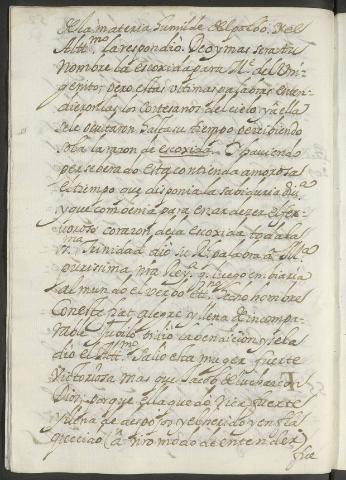 de la materia humilde del polbo. Y el
Altt.mo la respondio. Tuo y mas sera tu
Nombre la escoxida para M.e del Uni-
genito; pero estas ultimas palabras enten-
dieron las los Cortesanos del cielo, y a ella
se le ocultaron hasta su tiempo percibiendo
sola la razon de escoxida. Y hauiendo
perseberado esta contienda amorosa
el tiempo que disponia la Sabiduria Diu.a
y que combenia para enardezer el fer-
uoroso corazon de la escoxida toda la
ss.ma Trinidad dio su Rl. palabra a M.a
purissima nra Rey.a q luego embiaria
al mundo el verbo etr.no hecho hombre
Con este fiat alegre y llena de incompa-
rable Jubilo pidio la bendicion y se la
dio el Altt.mo Salio esta muger fuerte
victoriosa mas que Jacob de luchar con
Dios, porque ella quedo rica fuerte
y llena de despojos y el herido y enfla-
quecido (a nro modo de entender)
fue